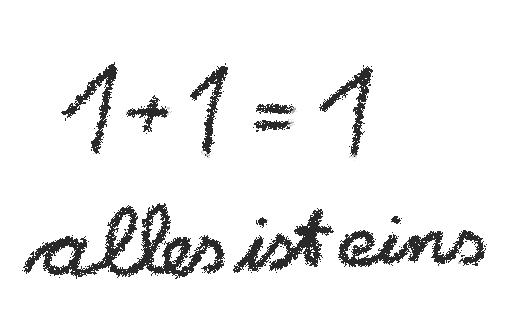 1 + 1 = 1
alles ist eins